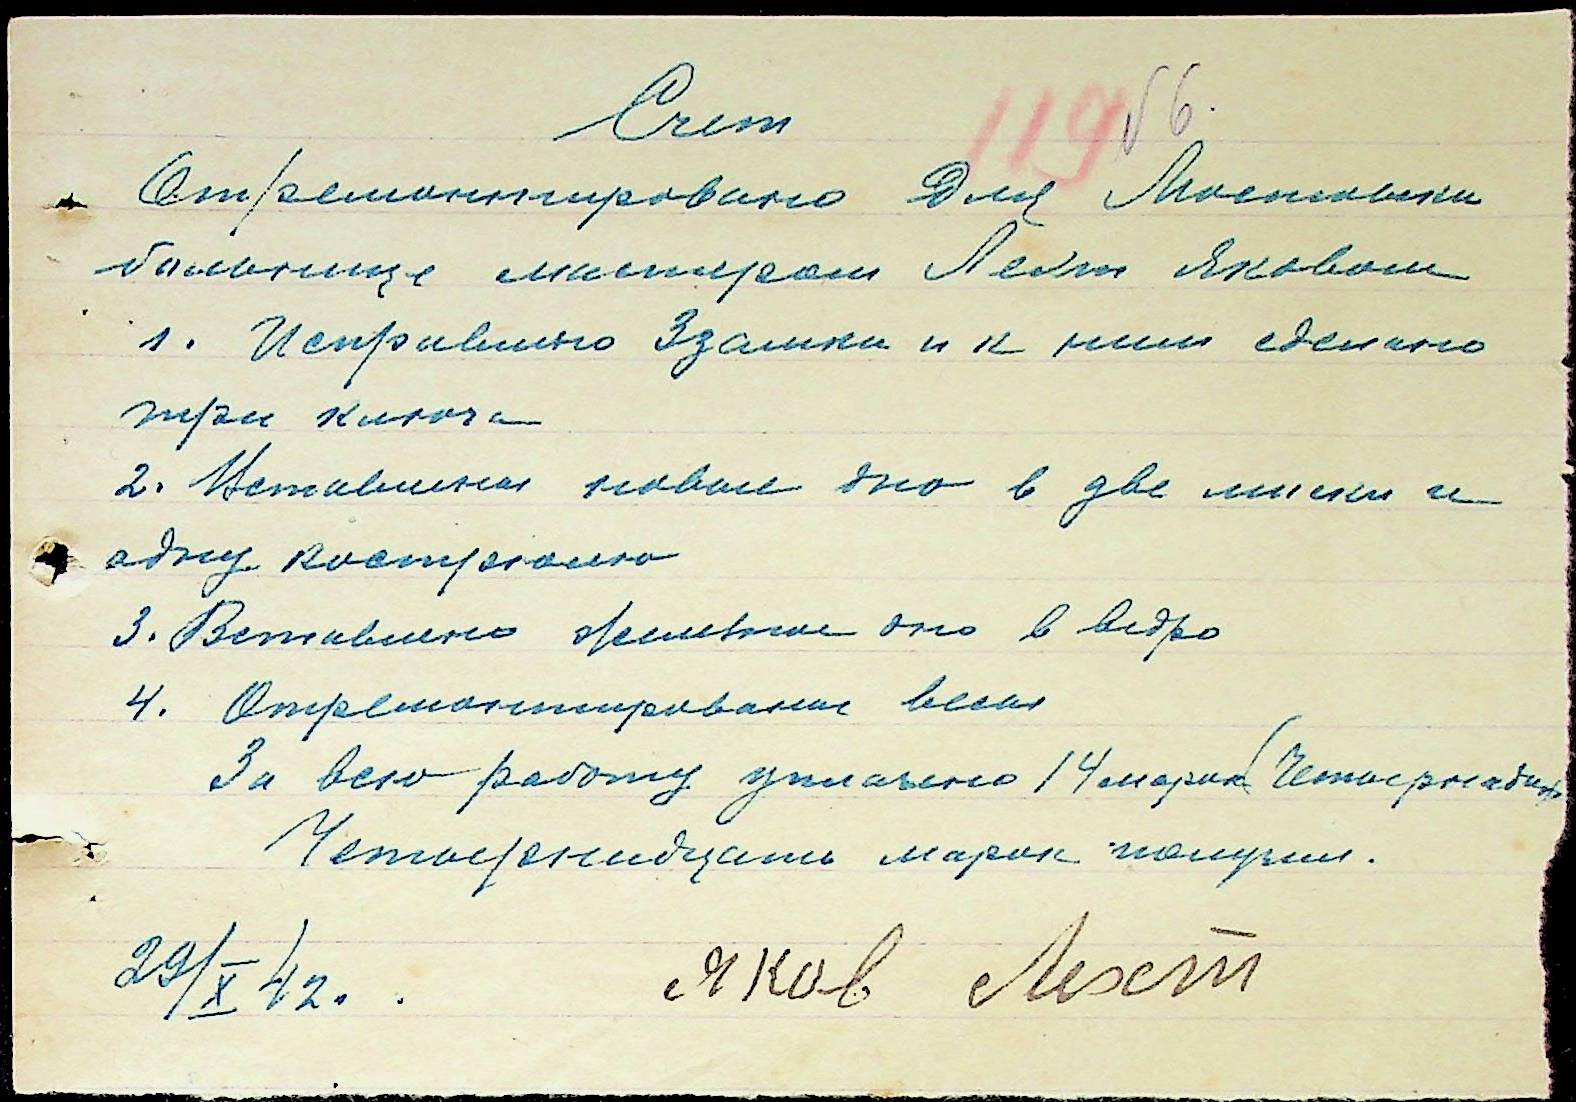 Счет
119 № 6.
Отремонтировано Для Мостовски
больнице мастером Лехт Яковом
1. Исправлено 3 замки и к ним сделано
три ключа
2. Вставлена новое дно в две миски и
адну кострюлю
3. Вставлено железное дно в ведро
4. Отремонтирование весы
За всю работу уплачено 14 марок (Четырнадцать
Четырнадцать марок получил.
29/X 42.
Яков Лехт